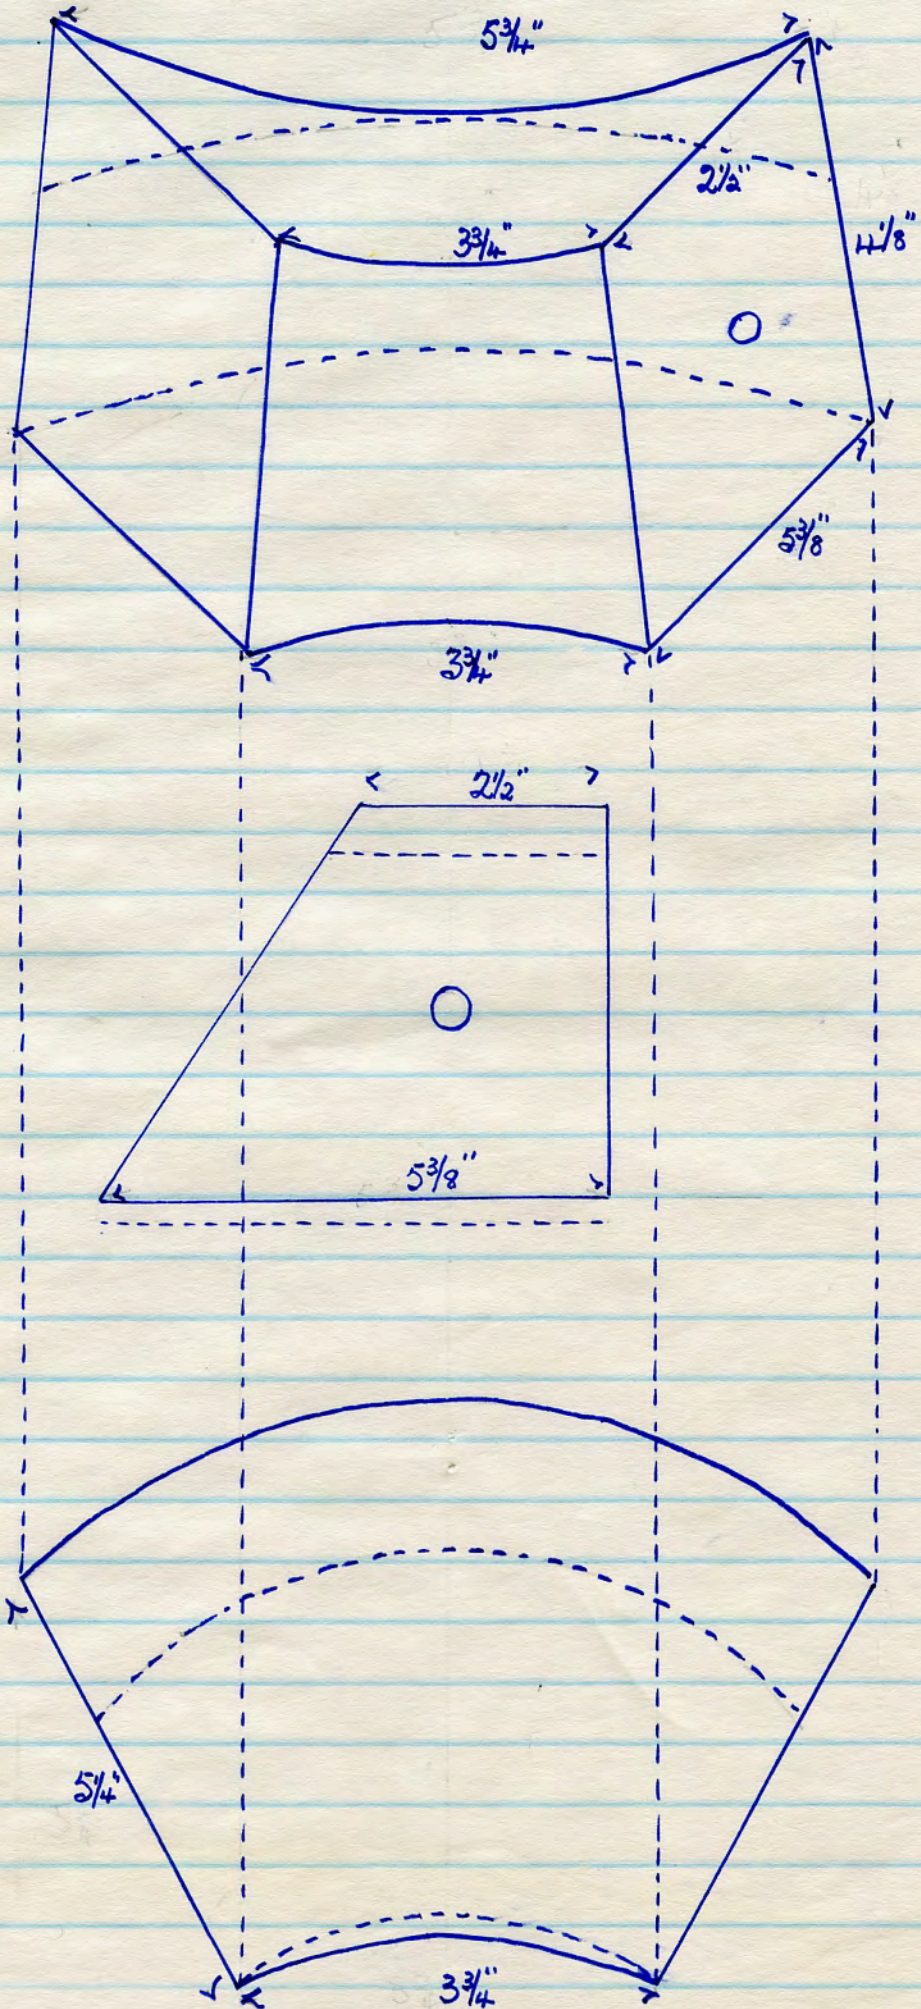 5¾"
2½"
3¾"
4⅛"
5⅜"
3¾"
2½"
5⅜"
5¼"
3¾"